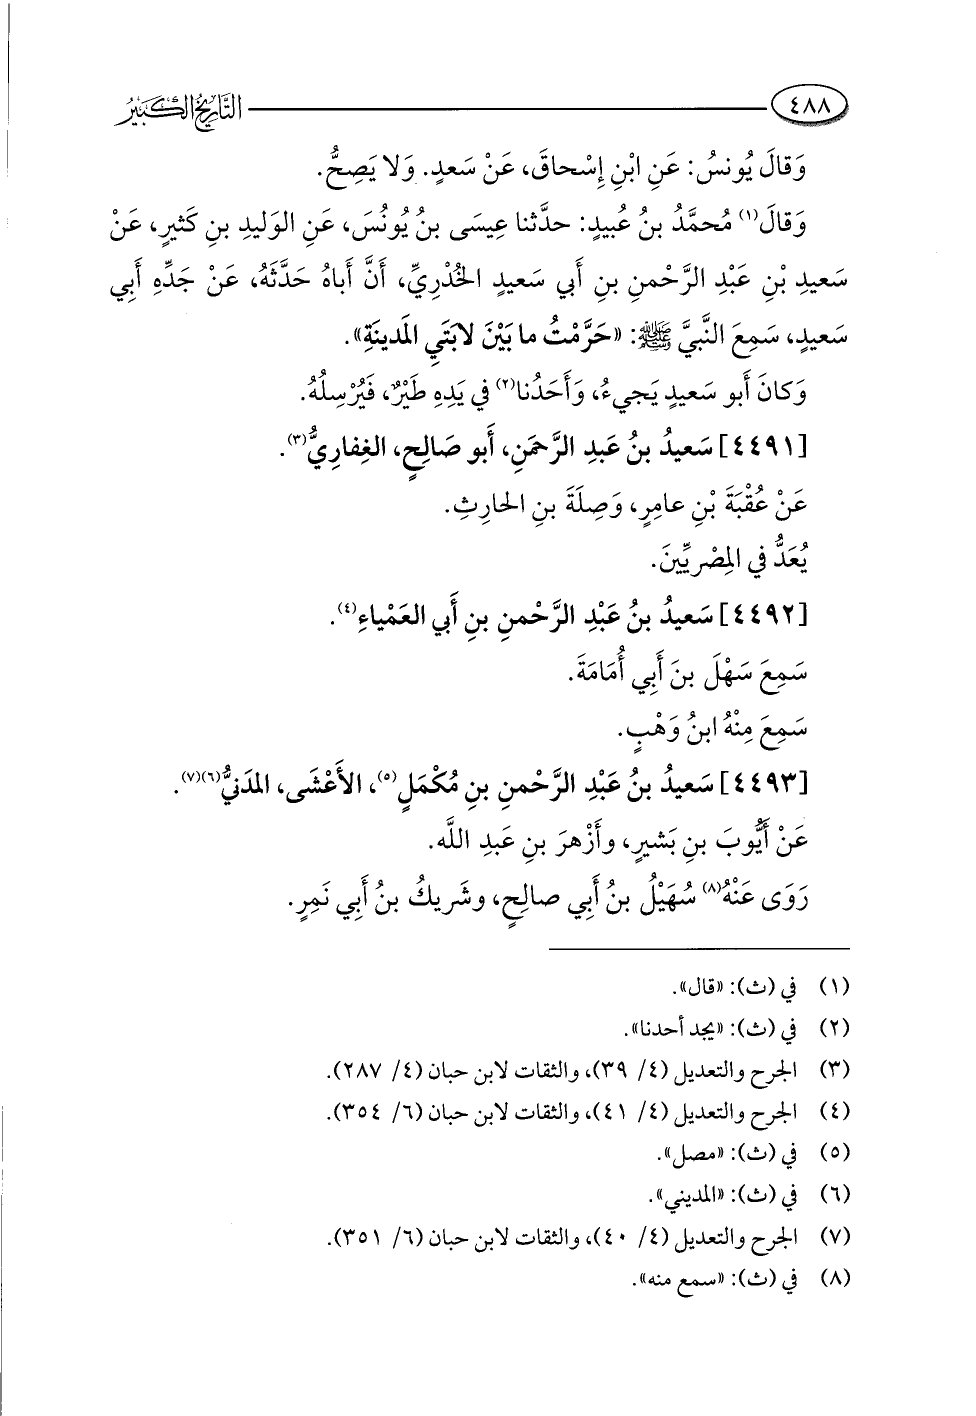 ٤٨٨ التاريخ الكبير
وَقالَ يُونسُ: عَنِ ابْنِ إِسْحاقَ، عَنْ سَعدٍ. وَلا يَصِحُّ.
وَقالَ(١) مُحمَّدُ بنُ عُبيدٍ: حدَّثنا عِيسَى بنُ يُونُسَ، عَنِ الوَليدِ بنِ كَثيرٍ، عَنْ
سَعيدِ بْنِ عَبْدِ الرَّحْمنِ بنِ أبي سَعيدٍ الخُدْرِيِّ، أَنَّ أَباهُ حَدَّثَهُ، عَنْ جَدِّهِ أَبِي
سَعيدٍ، سَمِعَ النَّبيَّ ﷺ: «حَرَّمْتُ ما بَيْنَ لابَتَيِ المَدينَةِ».
وَكانَ أَبو سَعيدٍ يَجيءُ، وَأَحَدُنا(٢) في يَدِهِ طَيْرٌ، فَيُرْسِلُهُ.
[٤٤٩١] سَعيدُ بنُ عَبدِ الرَّحمَنِ، أَبو صَالِحٍ، الغِفاريُّ(٣).
عَنْ عُقْبَةَ بْنِ عامِرٍ، وَصِلَةَ بنِ الحارِثِ.
يُعَدُّ في المِصْريِّينَ.
[٤٤٩٢] سَعيدُ بنُ عَبْدِ الرَّحْمنِ بنِ أَبي العَمْياءِ(٤).
سَمِعَ سَهْلَ بنَ أَبِي أُمَامَةَ.
سَمِعَ مِنْهُ ابنُ وَهْبٍ.
[٤٤٩٣] سَعيدُ بنُ عَبْدِ الرَّحْمنِ بنِ مُكْمَلٍ(٥)، الأَعْشَى، المدَنيُّ(٦)(٧).
عَنْ أَيُّوبَ بنِ بَشيرٍ، وأَزْهرَ بنِ عَبدِ اللَّه.
رَوَى عَنْهُ(٨) سُهَيْلُ بنُ أَبي صالِحٍ، وشَريكُ بنُ أَبِي نَمِرٍ.
(١) في (ث): «قال».
(٢) في (ث): «يجد أحدنا».
(٣) الجرح والتعديل (٤/ ٣٩)، والثقات لابن حبان (٤/ ٢٨٧).
(٤) الجرح والتعديل (٤/ ٤١)، والثقات لابن حبان (٦/ ٣٥٤).
(٥) في (ث): «مصل».
(٦) في (ث): «المديني».
(٧) الجرح والتعديل (٤/ ٤٠)، والثقات لابن حبان (٦/ ٣٥١).
(٨) في (ث): «سمع منه».